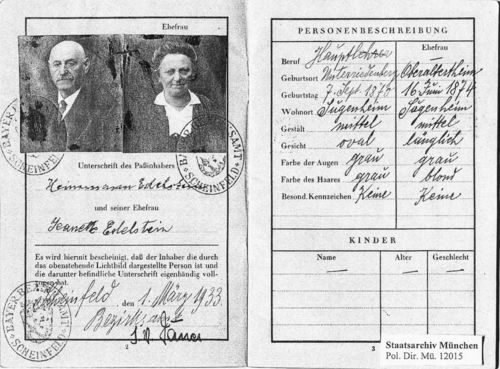 Ehefrau
BAYER. BEZIRKSAMT
SCHEINFELD
Unterschrift des Paßinhabers
Edelstein
und seiner Ehefrau
Jeanette Edelstein
Es wird hiermit bescheinigt, daß der Inhaber die durch
das obenstehende Lichtbild dargestellte Person ist und
die darunter befindliche Unterschrift eigenhändig voll-
zogen hat.
Scheinfeld, den 1. März 1933.
Bezirksamt
2
PERSONENBESCHREIBUNG
Ehefrau
Beruf Hauptlehrer
Geburtsort Oberaltertheim
Geburtstag 7. Sept. 16 Juni 1874
Wohnort Sugenheim Sugenheim
Gestalt mittel mittel
Gesicht oval länglich
Farbe der Augen grau grau
Farbe des Haares grau blond
Besond. Kennzeichen Keine Keine
KINDER
Name Alter Geschlecht
3
Staatsarchiv München
Pol. Dir. Mü. 12015